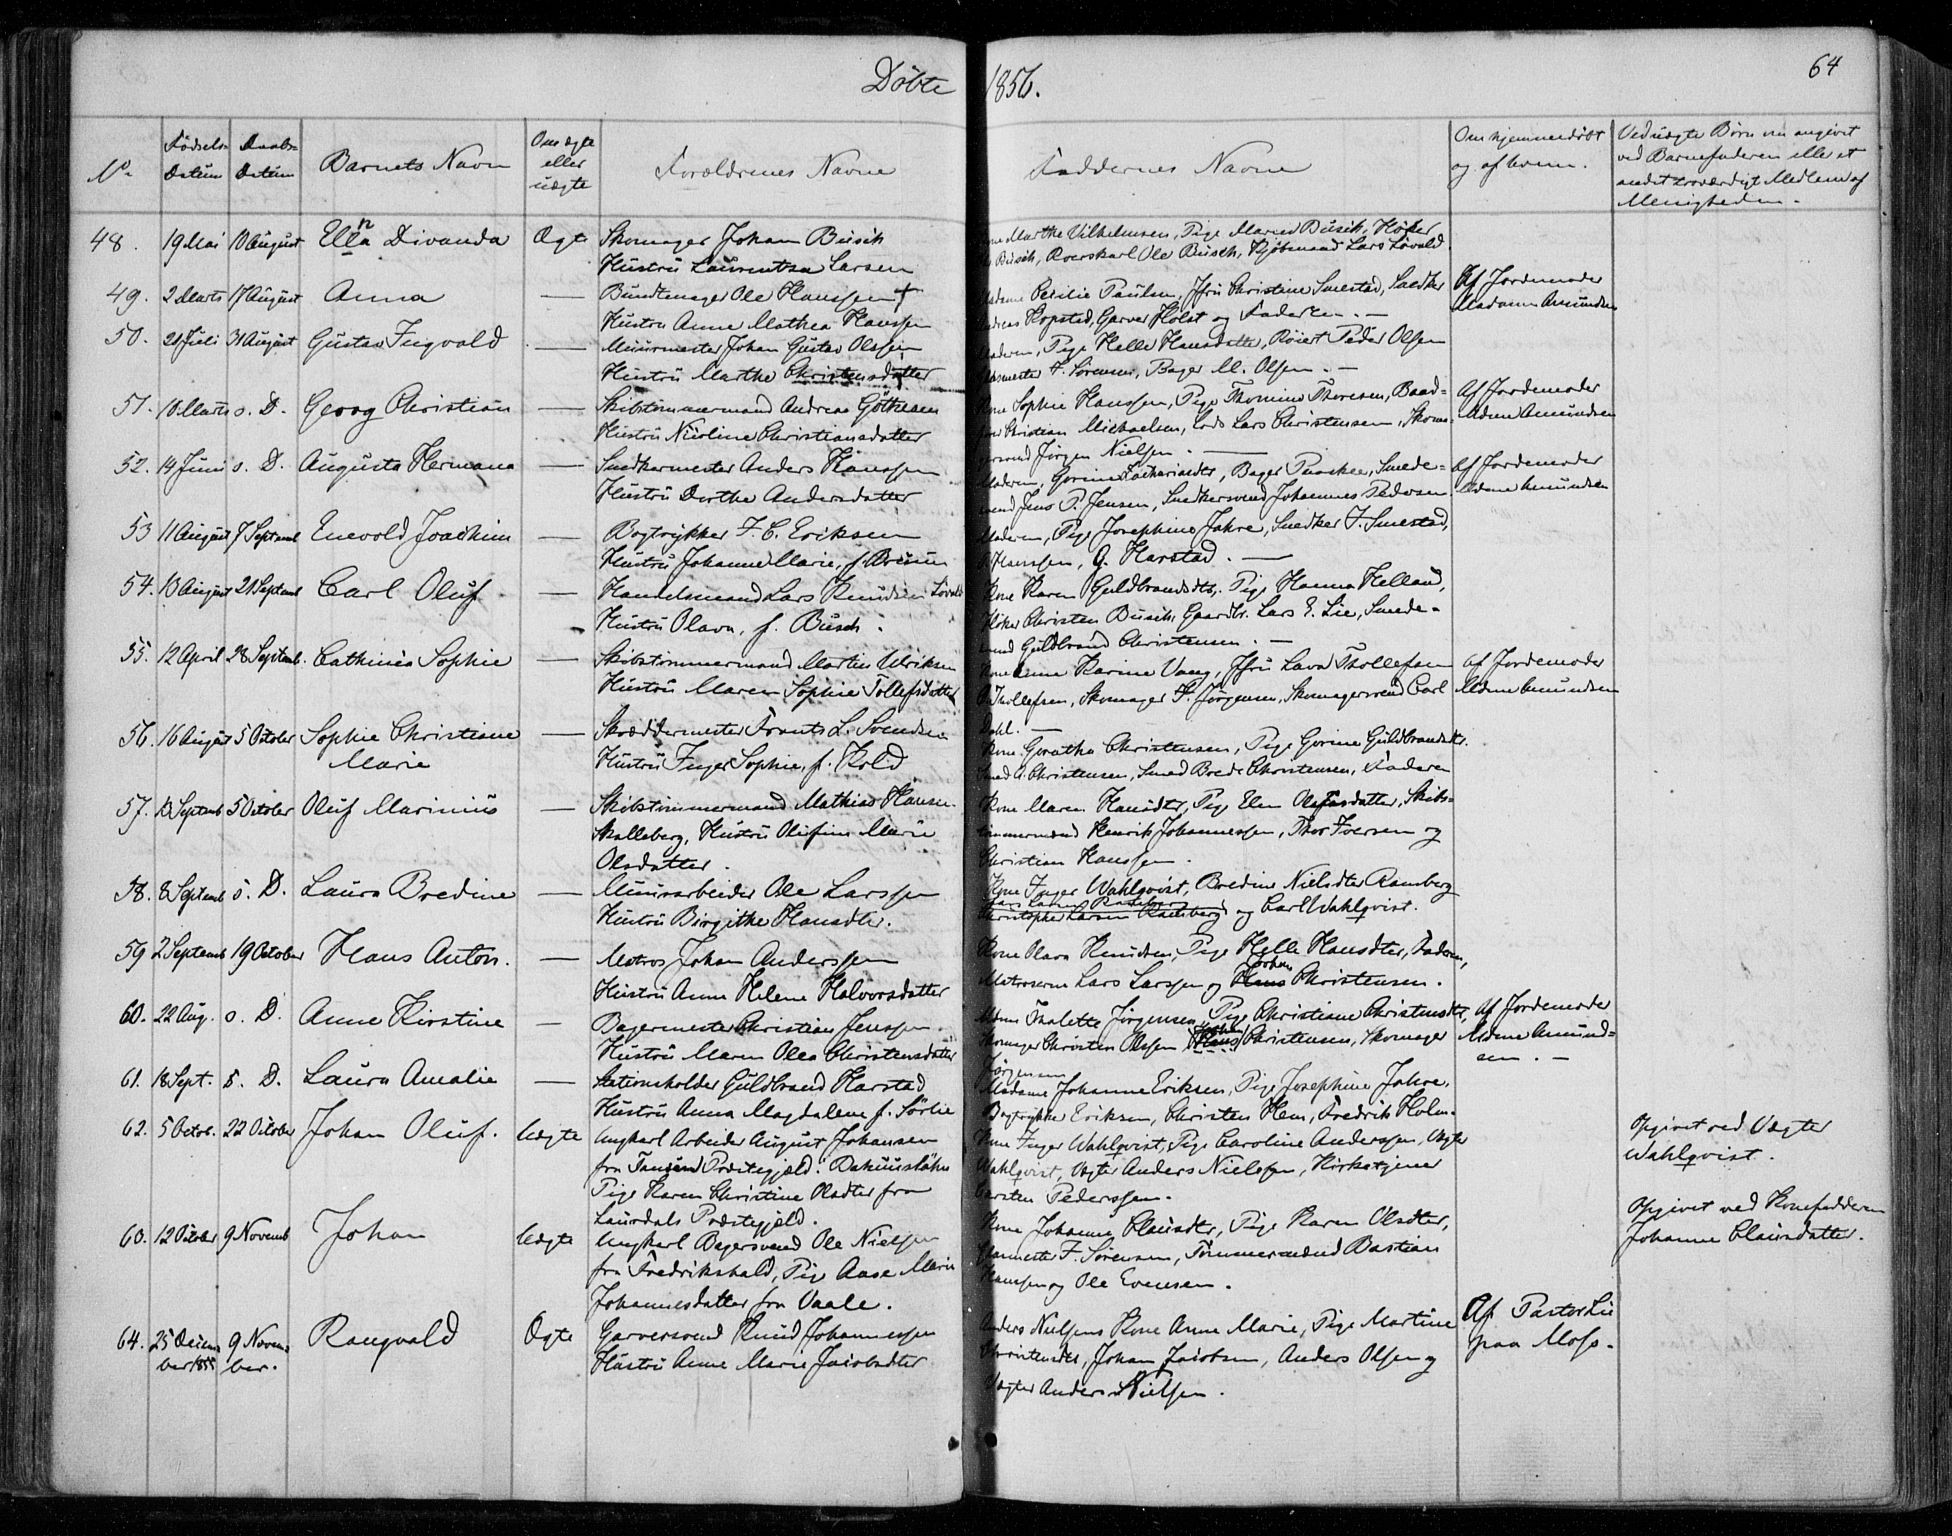 Døbte 1856.
64
No.
Fødsels-Datum
Daabs-Datum
Barnets Navn
Om ægte eller uægte
Forældrenes Navne
Faddernes Navne
Om hjemmedøbt og af hvem.
Ved uægte Børn om angivet
ved Barnefaderen eller et
andet troværdigt Medlem af
Menigheden.
48. 19 Mai 10 August Ella Divanda Ægte Skomager Johan Busch
Hustru Laurentza Larsen
Kone Marthe Vilhelmsen, Pige Maren Busch, Høker
Busch, Roerskarl Ole Busch, Kjøbmand Lars Løvald.
49. 2 Marts 17 August Anna — Bundtmager Ole Hanssen +
Hustru Anne Mathea Hanssen
Madame Cecilie Paulsen, Jfru Christine Smestad, Snedker
Andreas Kopstad, Garver Holst og Faderen. —
Af Jordemoder
Madame Amundsen
50. 21 Juli 31 August Gustav Ingvald — Muurmester Johan Gustav Olssen
Hustru Marthe Christensdatter
Moderen, Pige Helle Hansdatter, Røiert Peder Olsen
Glasmester F. Sørensen, Bager M. Olsen. —
51. 10 Marts s. D. Georg Christian — Skibstømmermand Andreas Göthesen
Hustru Nicoline Christiansdatter
Kone Sophie Hanssen, Pige Thomine Thoresen, Baad-
Christian Michaelsen, Lods Lars Christensen, Skoma-
gersvend Jørgen Nielsen. —
Af Jordemoder
Mdme Amundsen
52. 14 Juni s. D. Augusta Hermana — Snedkermester Anders Hanssen
Hustru Dorthe Andersdatter
Moderen, Gorine Zachariasdtr, Bager Paaske, Smede-
svend Jens P. Jensen, Snedkersvend Johannes Pedersen
Af Jordemoder
Mdme Amundsen
53 11 August 7 Septemb Enevold Joachim — Bogtrykker F. C. Eriksen
Hustru Johanne Marie, f. Bruun
Moderen, Pige Josephine Jahre, Snedker F. Smestad,
Hanssen, G. Harstad. —
54. 13 August 21 Septemb Carl Oluf — Handelsmand Lars Knudsen Løvald
Hustru Olava, f. Busch.
Kone Karen Guldbrandsdtr, Pige Hanna Helland,
Høker Christen Busch, Gaardbr. Lars E. Lie, Smede-
svend Guldbrand Christensen. —
55. 12 April 28 Septemb. Cathinca Sophie — Skibstømmermand Martin Ulriksen
Hustru Maren Sophie Tollefsdatter
Kone Anne Karine Vang, Jfru Lava Thollefsen
Thollefsen, Skomager P. Jørgensen, Skomagersvend Carl
Dahl. —
Af Jordemoder
Mdme Amundsen
56. 16 August 5 October Sophie Christiane Marie — Skræddermester Frants L. Svendsen
Hustru Inger Sophie, f. Kold
Kone Goratha Christensen, Pige Gorine Guldbrandsdtr.
Smed A. Christensen, Smed Brede Christensen, Faderen
57. 13 Septemb 5 October Oluf Marinius — Skibstømmermand Mathias Hansen
Skalleberg, Hustru Olufine Marie
Olsdatter.
Kone Maren Hansdtr, Pige Elen Olafsdatter, Skibs-
tømmermænd Henrik Johannessen, Thor Iversen og
Christian Hanssen.
58. 8 Septemb s. D. Laura Bredine — Muurarbeider Ole Larssen
Hustru Birgithe Hansdtr.
Kone Inger Wahlqvist, Bredine Nielsdtr Ramsberg
Christopher Larsen Ramsberg og Carl Wahlqvist.
59 2 Septemb 19 October Hans Anton. — Matros Johan Anderssen
Hustru Anne Helene Halvorsdatter
Kone Olava Knudsen, Pige Helle Hansdtr, Faderen,
Matroserne Lars Larssen og Hans Johan Christensen.
60. 22 Aug. s. D. Anne Kirstine — Bagermester Christian Jenssen.
Hustru Maren Olea Christensdatter
Mdme Thalette Jørgensen, Pige Christiane Christensdtr,
Skomager Christen Olssen Hans Johan Christensen, Skomager
Jørgensen
Af Jordemoder
Mdme Amund-
sen. —
61. 18 Sept. s. D. Laura Amalie — Stationsholder Guldbrand Harstad
Hustru Anna Magdalene f. Sørlie
Madame Johanne Eriksen, Pige Josephine Jahre,
Bogtrykker Eriksen, Christen Hem, Fredrik Holm.
62. 5 Octob. 22 October Johan Oluf. Uægte Ungkarl Arbeider August Johansen
fra Tanum Præstegjæld i Bahuuslähn
Pige Karen Christine Olsdter fra
Laurdals Præstegjæld.
Kone Inger Wahlqvist, Pige Caroline Anderssen, Vægter
Wahlqvist, Vægter Anders Nielssen, Kirketjener
Carsten Pederssen.
Opgivet ved Vægter
Wahlqvist.
63. 12 October 9 Novemb Johan Uægte Ungkarl Bagersvend Ole Nielsen
fra Fredrikshald, Pige Aase Marie
Johannesdatter fra Vaale.
Kone Johanne Clausdtr, Pige Karen Olsdtr,
Glasmester F. Sørensen, Tømmermænd Bastian
Hanssen og Ole Evensen.
Opgivet ved Konefadderen
Johanne Clausdatter.
64. 25 Decem-
ber 1855 9 Novem-
ber. Rangvald Ægte Garversvend Knud Johannessen
Hustru Anne Marie Jacobsdter
Anders Nielsens Kone Anne Marie, Pige Martine
Christensdtr, Johan Jacobsen, Anders Olsen og
Vægter Anders Nielsen.
Af Pastor Lie
paa Moss.